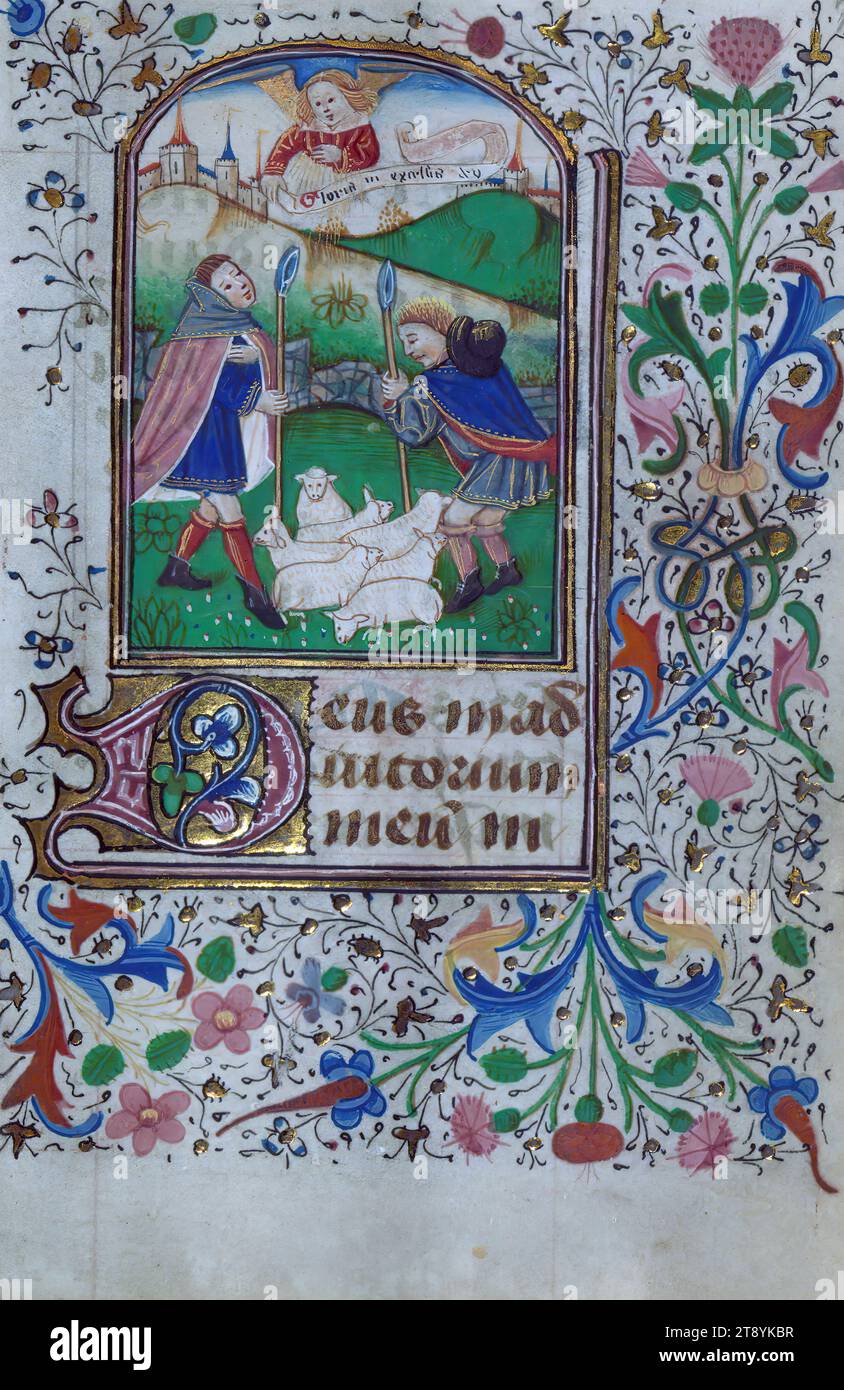 Gloria in excelsis deo
Deus in ad
iutorium
meū in
alamy
Image ID: 2T8YKBR
www.alamy.com